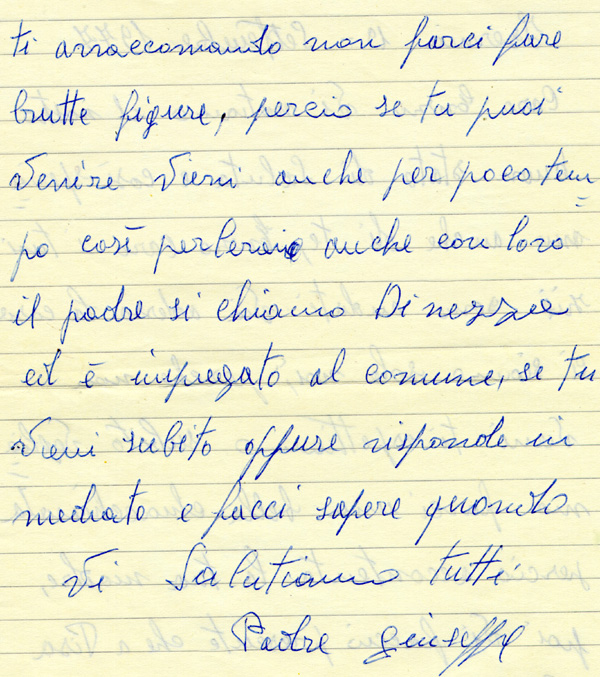 ti arraccomando non farci fare
brutte figure, percio se tu puoi
venire vieni anche per poco tem=
po così perlerai anche con loro
il padre si chiamo Dinezza
ed è impegato al comune, se tu
vieni subito oppure risponde im
mediato e facci sapere quando
Vi Salutiamo tutti
Padre Giuseppe